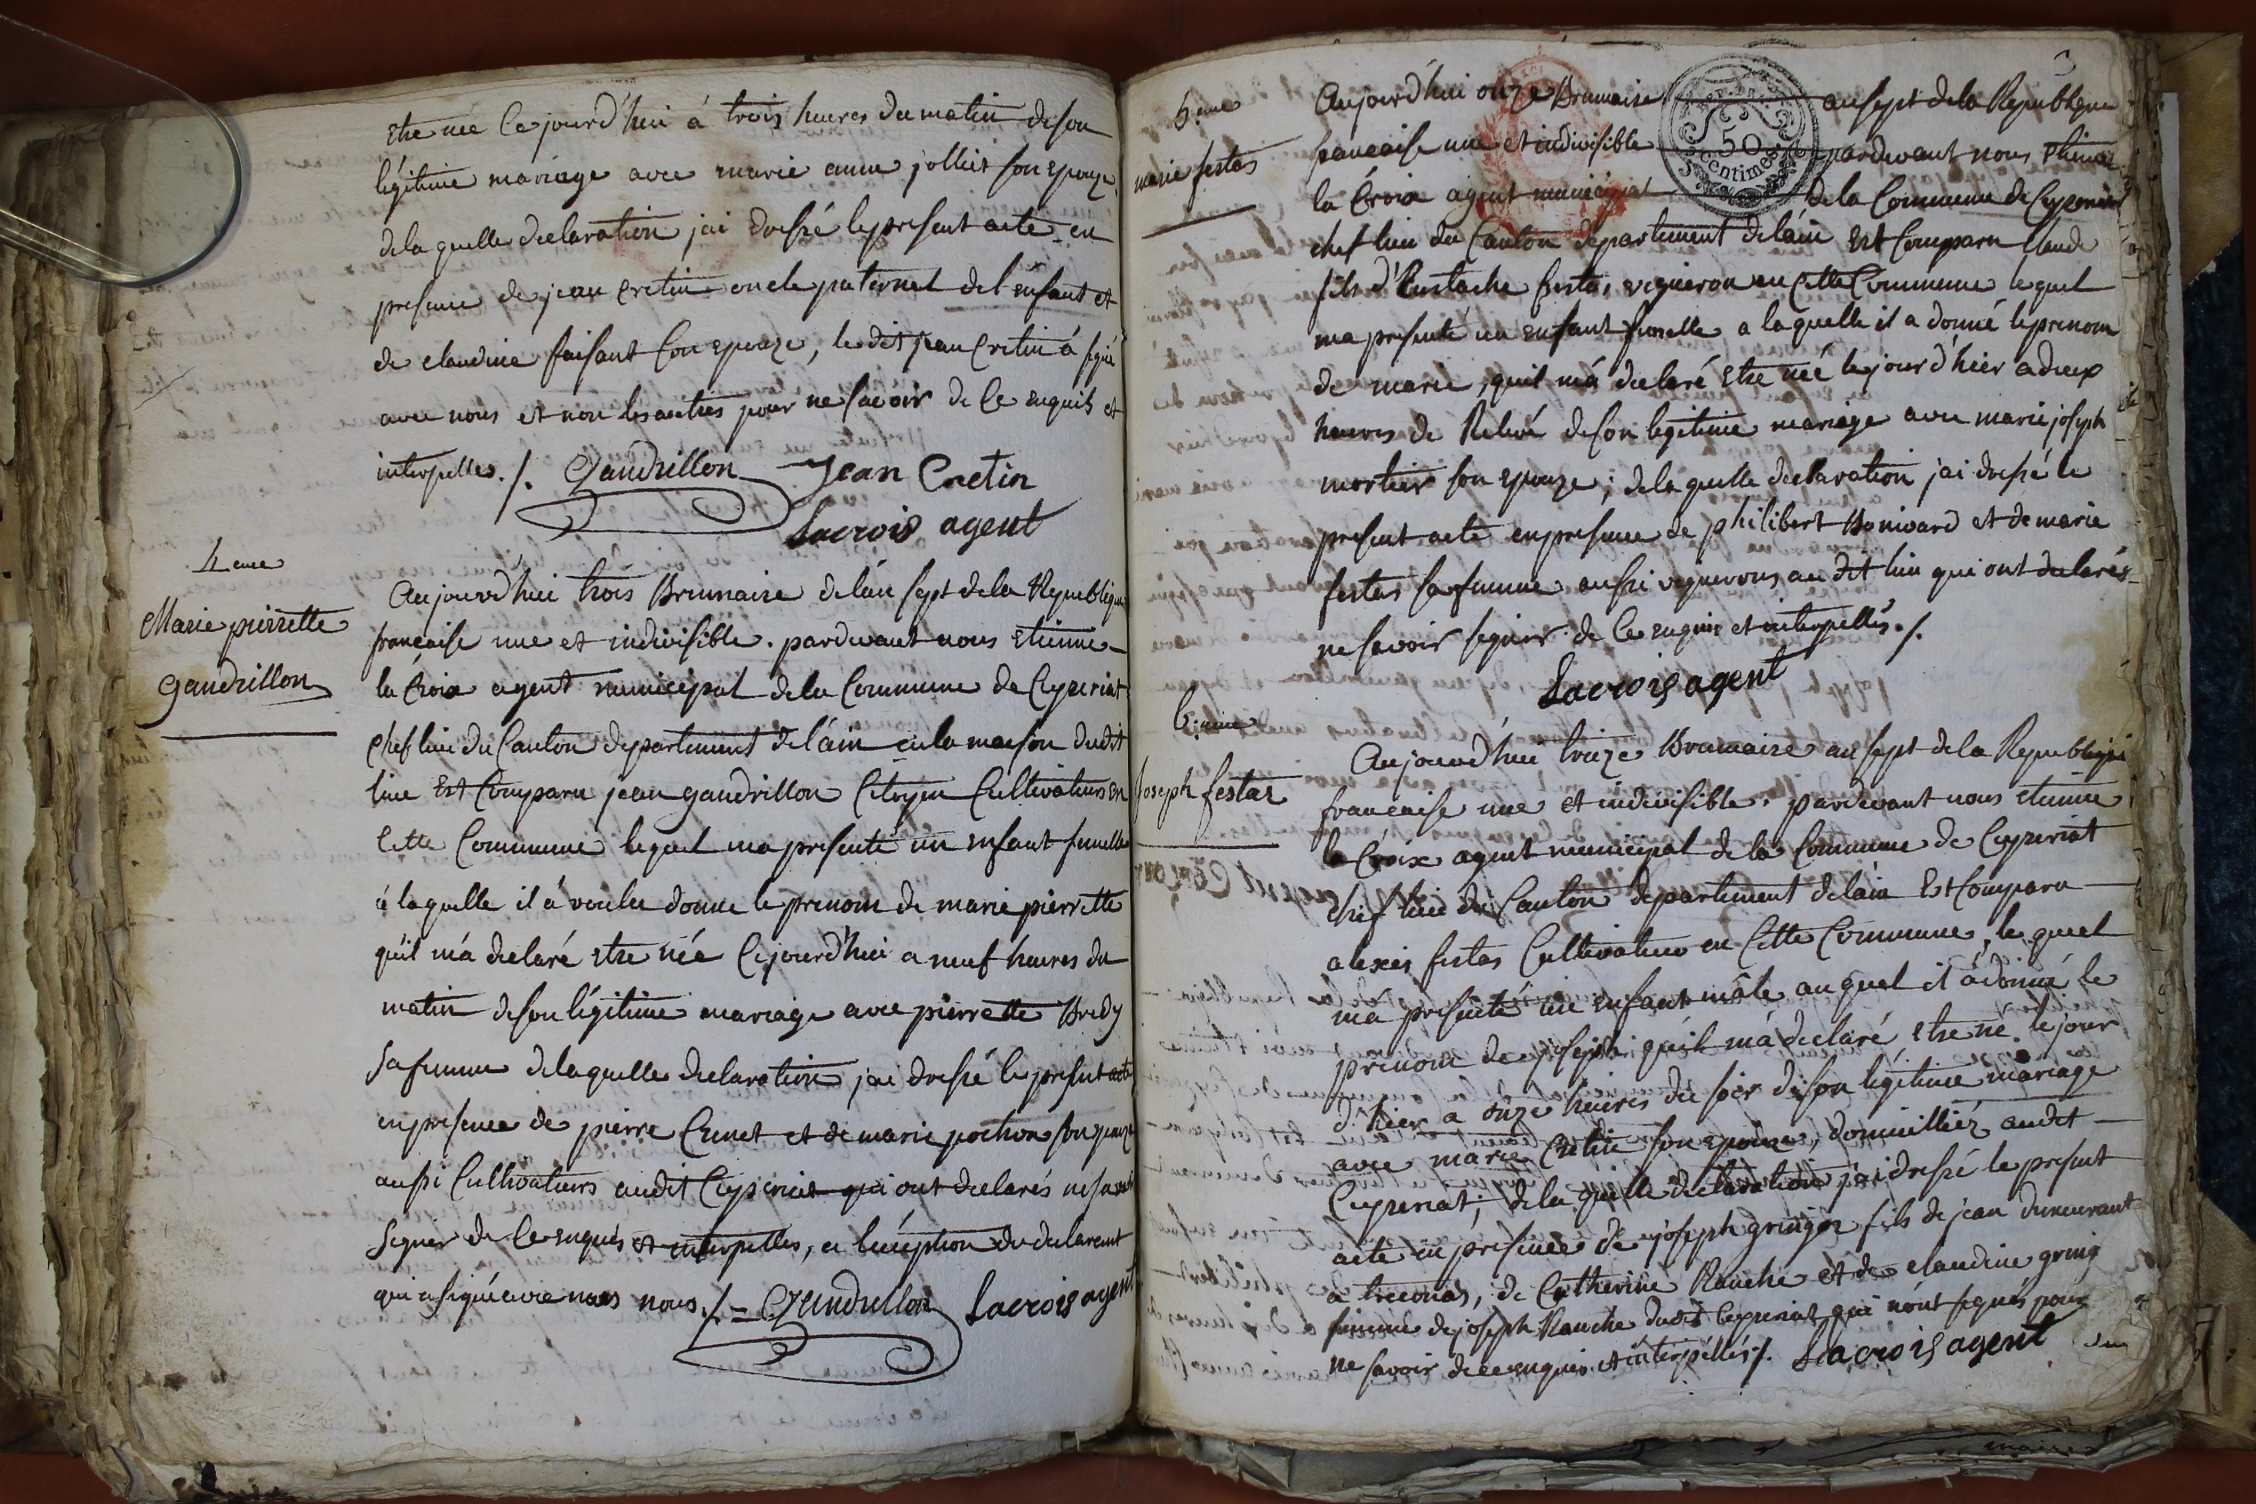 etre née Ce jourd'hui à trois heures du matin de son
légitime mariage avec marie anne jolliet son epouze
de la quelle declaration j'ai dressé le present acte en
presence de jean Cretin oncle paternel de l'enfant et
de claudine faisant son epouze, le dit jean Cretin à signé
avec nous et non les autres pour ne savoir de Ce enquis et
interpellés ./. Gaudrillon Jean Cretin
Lacrois agent
4eme
Marie pierrette
gaudrillon
Aujourd'hui trois Brumaire de l'an sept de la Republique
francaise une et indivisible . pardevant nous etienne
la Croix agent municipal de la Commune de Ceyzeriat
chef lieu du Canton departement de l'ain en la maison dudit
lieu Est Comparu jean gaudrillon Citoyen Cultivateurs En
Cette Commune lequel ma presenté un enfant femelle
à laquelle il à voulu donné le prenom de marie pierrette
qu'il m'à declaré etre née Cejourd'hui a neuf heures du
matin de son légitime mariage avec pierrette Bredy
sa femme de laquelle declaration j'ai dressé le present acte
en presence de pierre Cunet et de marie pochon son epouze
aussi Cultivateurs audit Ceyzeriat qui ont declarés ne savoir
signer de Ce enquis et interpellés, a l'exception du declarant
qui a signé avec nous nous ./. = Gaudrillon Lacrois agent
5eme
marie festas
Aujourd'hui onze Brumaire an sept de la Republique
francaise une et indivisible pardevant nous etienne
la Croix agent municipal de la Commune de Ceyzeriat
50
centimes
chef lieu du Canton departement de l'ain Est Comparu Claude
fils d'Eustache festas vigneron en Cette Commune lequel
ma presenté un enfant femelle a laquelle il a donné le prenom
de marie, quil m'à declaré etre née le jour d'hier a deux
heures de Relevé de son legitime mariage avec marie joseph
mortier son epouze ; de la quelle declaration j'ai dressé le
present acte en presence de philibert Bonivard et de marie
festas sa femme aussi vignerons au dit lieu qui ont declarés
ne savoir signer de Ce enquis et interpellés ./.
Lacrois agent
6eme
Joseph festas
Aujourd'hui treize Brumaire an sept de la Republique
francaise une et indivisible . pardevant nous etienne
la Croix agent municipal de la Commune de Ceyzeriat
chef lieu du Canton departement de l'ain Est Comparu
alexis festas Cultivateur en Cette Commune, le quel
m'à presenté un enfant mâle auquel il à donné le
prenom de joseph qu'il m'à declaré etre né le jour
d'hier a onze heures du soir de son légitime mariage
avec marie Cretin son epouze, domicilliéz audit
Ceyzeriat ; de la quelle declaration j'ai dressé le present
acte en presence de joseph gringoz fils de jean demeurant
a treconas, de Catherine Ranche et de claudine gring
femme de joseph Ranche dudit Ceyzeriat qui n'ont signés pour
ne savoir de ce enquis et interpéllés ./. Lacrois agent